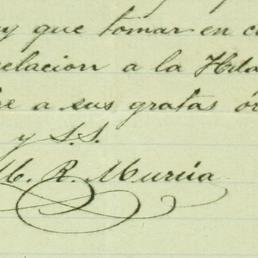 y que tomar en c
relacion a la Hda
re a sus gratas ór
y S.S.
M. R. Murúa